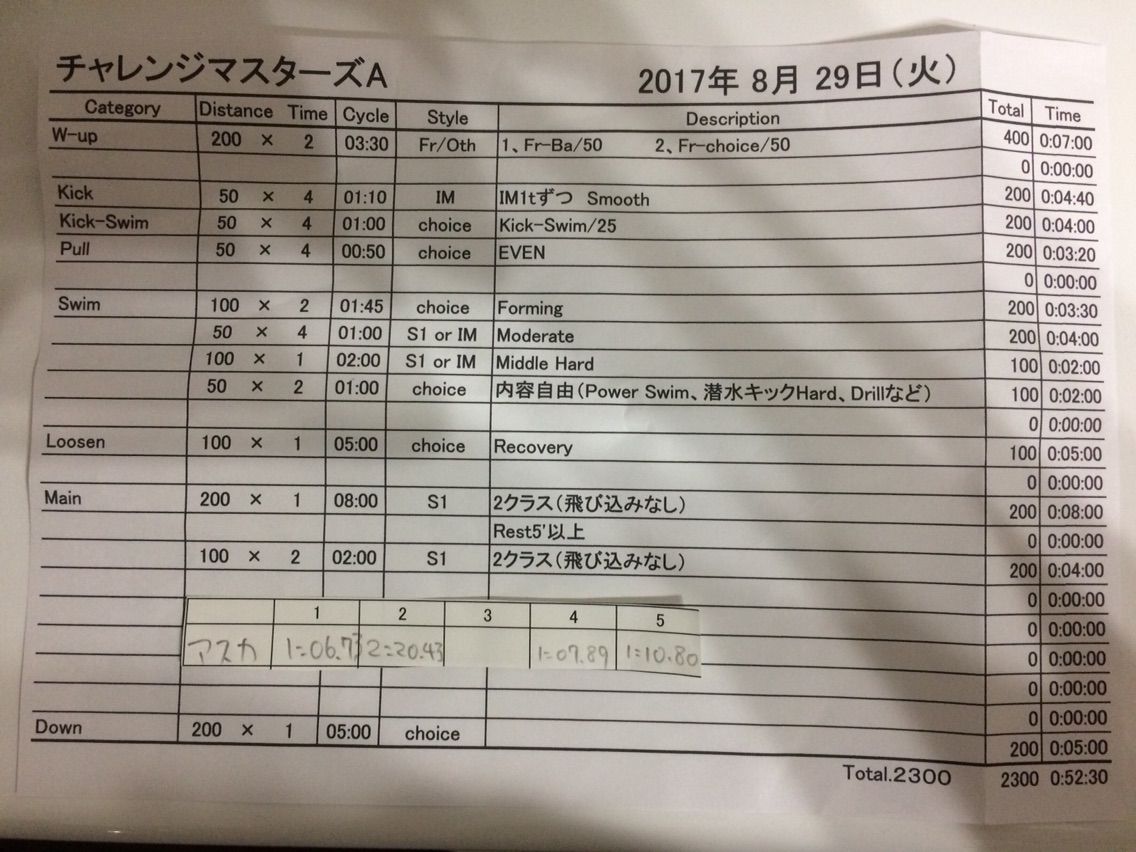 チャレンジマスターズA 2017年 8月 29日(火)
Category Distance Time Cycle Style Description Total Time
W-up 200 × 2 03:30 Fr/Oth 1、Fr-Ba/50 2、Fr-choice/50 400 0:07:00
0 0:00:00
Kick 50 × 4 01:10 IM IM1tずつ Smooth 200 0:04:40
Kick-Swim 50 × 4 01:00 choice Kick-Swim/25 200 0:04:00
Pull 50 × 4 00:50 choice EVEN 200 0:03:20
0 0:00:00
Swim 100 × 2 01:45 choice Forming 200 0:03:30
50 × 4 01:00 S1 or IM Moderate 200 0:04:00
100 × 1 02:00 S1 or IM Middle Hard 100 0:02:00
50 × 2 01:00 choice 内容自由(Power Swim、潜水キックHard、Drillなど) 100 0:02:00
0 0:00:00
Loosen 100 × 1 05:00 choice Recovery 100 0:05:00
0 0:00:00
Main 200 × 1 08:00 S1 2クラス(飛び込みなし) 200 0:08:00
Rest5'以上 0 0:00:00
100 × 2 02:00 S1 2クラス(飛び込みなし) 200 0:04:00
0 0:00:00
1 2 3 4 5 0 0:00:00
アスカ 1:06.73 2:20.43 1:07.89 1:10.80 0 0:00:00
0 0:00:00
0 0:00:00
Down 200 × 1 05:00 choice 200 0:05:00
Total.2300 2300 0:52:30